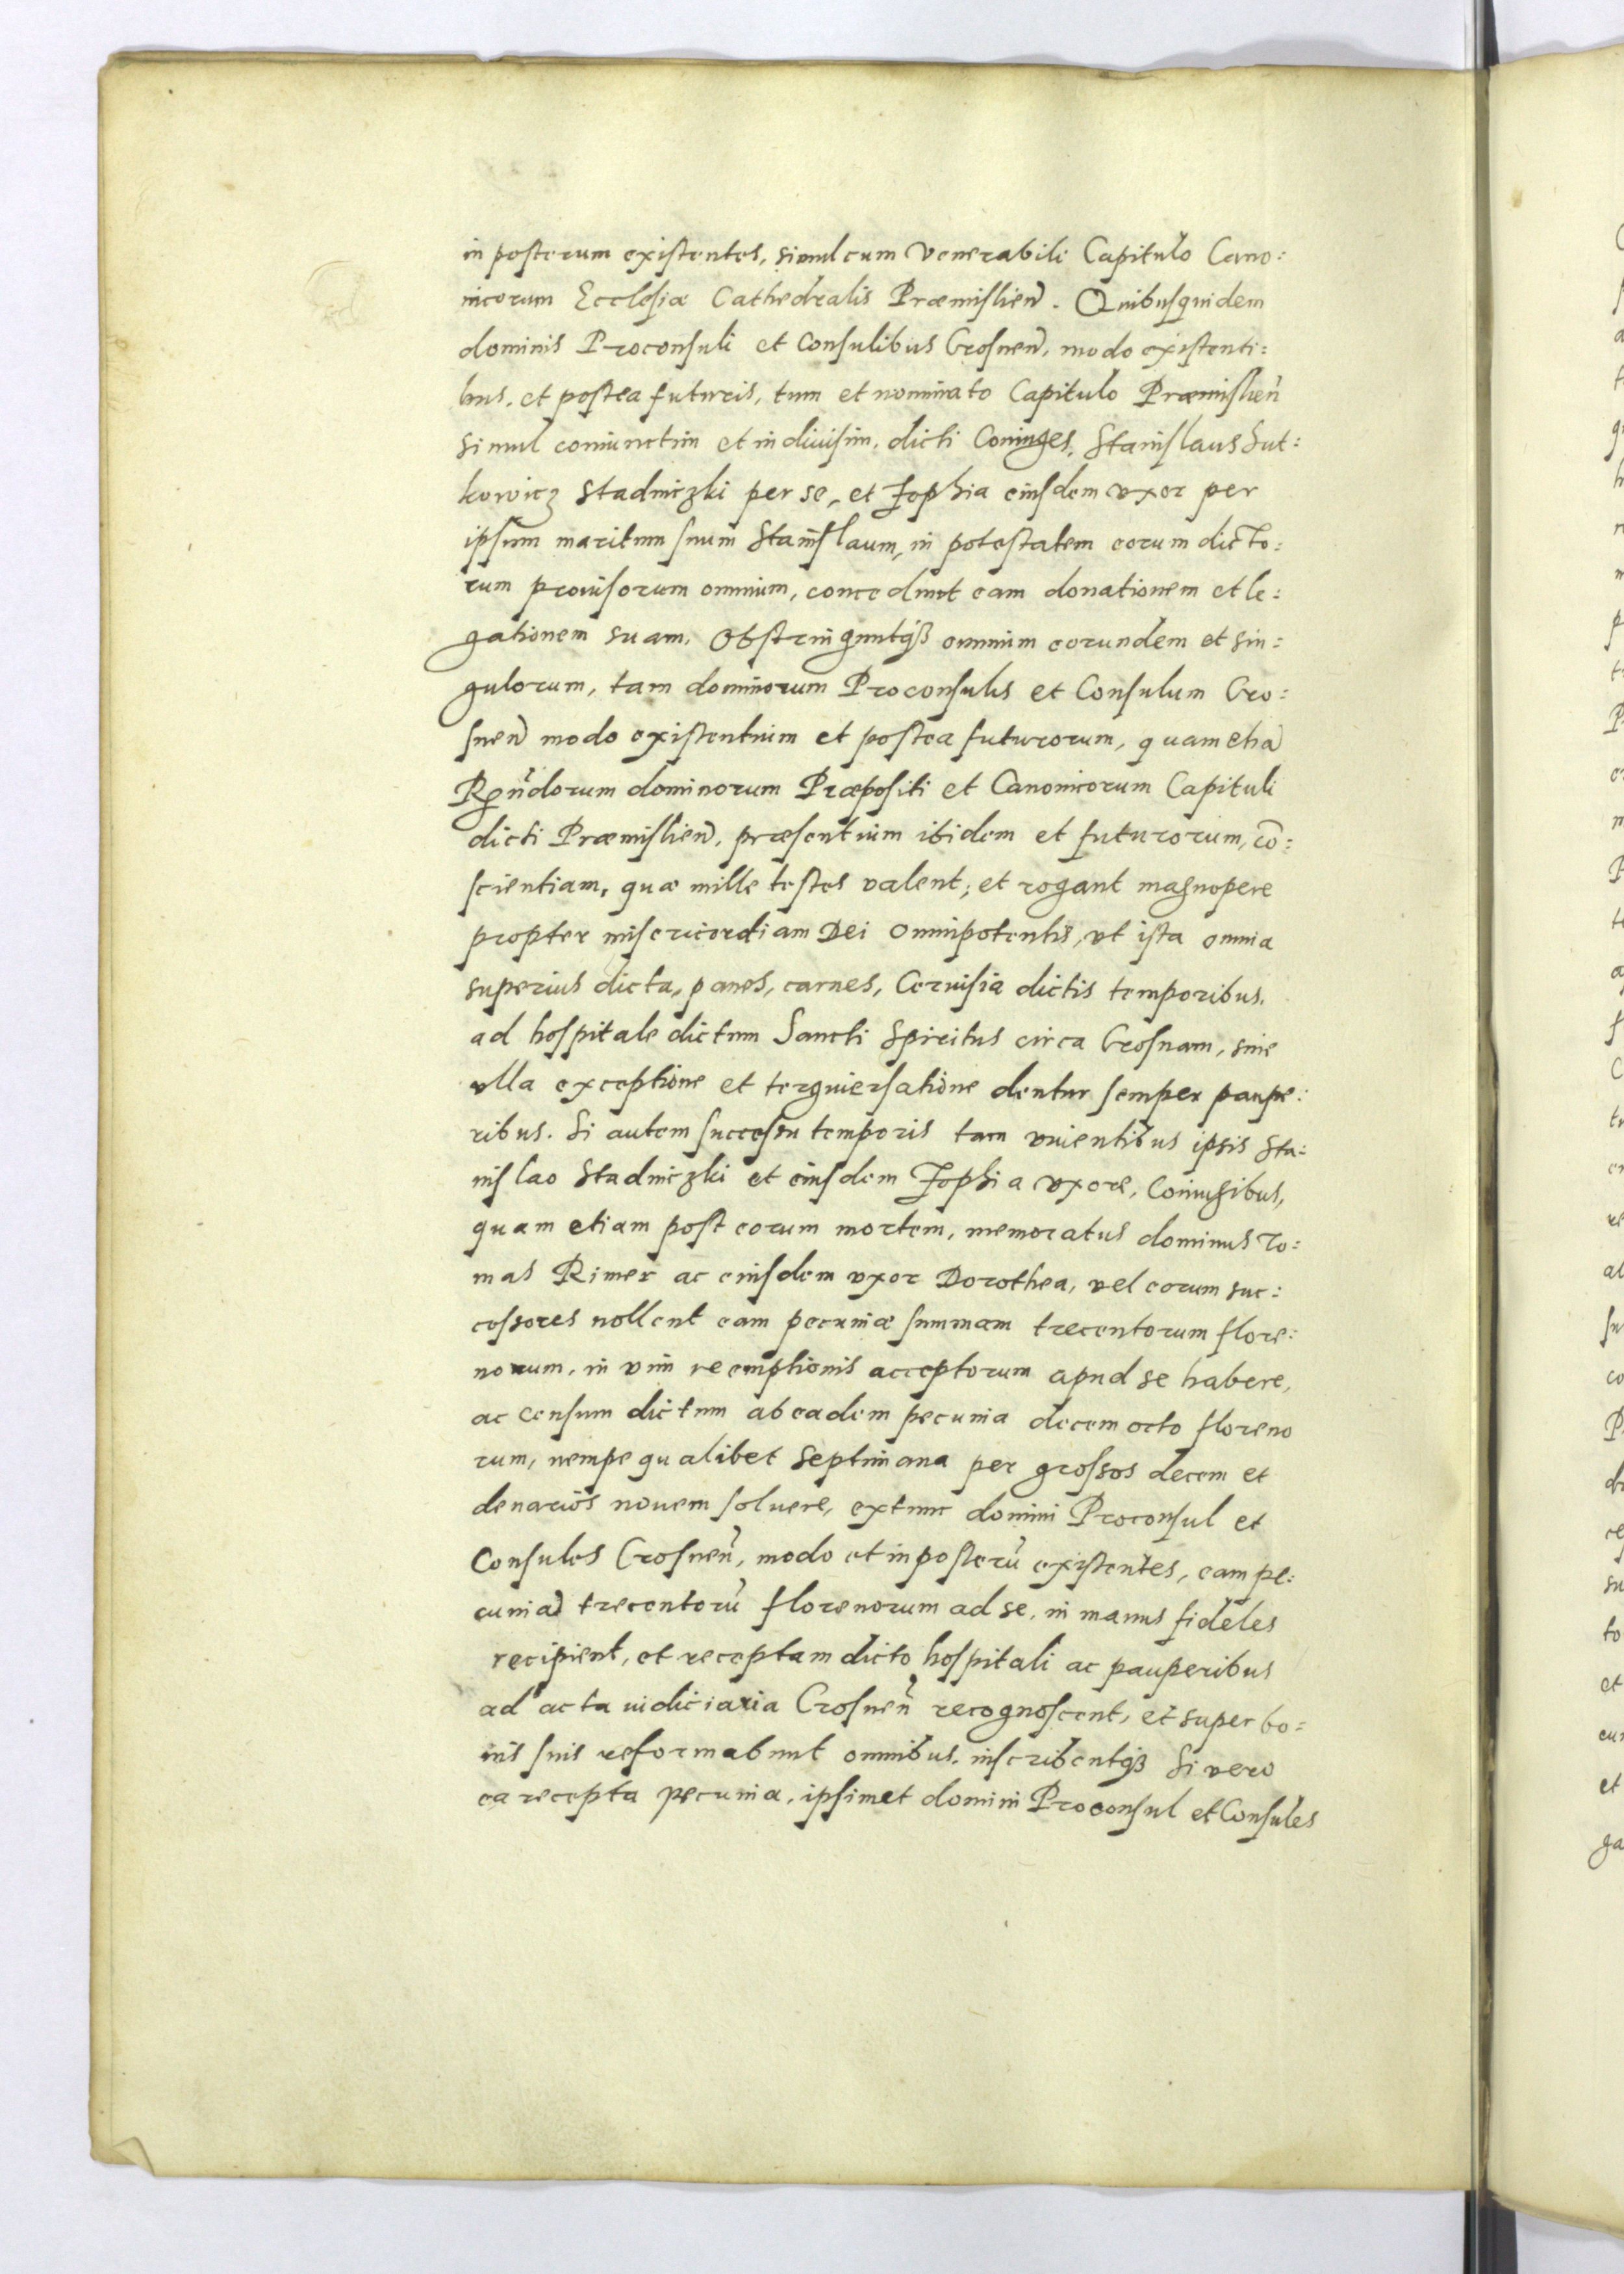 in posterum existentes, simul cum Venerabili Capitulo Cano:
nicorum Ecclesiæ Cathedralis Præmislien̄. Quibusquidem
dominis Proconsuli et Consulibus Crosnen̄, modo existenti:
bus, et postea futuris, tum et nominato Capitulo Præmislien̄
simul coniunctim et indiuisim, dicti Coniuges, Stanislaus Sut:
kowicz Stadniczki per se, et Zophia eiusdem vxor per
ipsum maritum suum Stanislaum, in potestatem eorum dicto:
rum prouisorum omnium, concedunt eam donationem et le:
gationem suam. Obstringuntqꝫ omnium eorundem et sin:
gulorum, tam dominorum Proconsulis et Consulum Cro:
snen̄ modo existentium et postea futurorum, quam etiā
Rn̄dorum dominorum Præpositi et Canonicorum Capituli
dicti Præmislien̄, præsentium ibidem et futurorum, cō:
scientiam, quæ mille testes valent; et rogant magnopere
propter misericordiam Dei omnipotentis, vt ista omnia
superius dicta, panes, carnes, Ceruisia dictis temporibus,
ad hospitale dictum Sancti Spiritus circa Crosnam, sine
vlla exceptione et terguiersatione dentur semper paupe:
ribus. Si autem successu temporis tam viuentibus ipsis Sta:
nislao Stadniczki et eiusdem Zophia vxore, Coniugibus,
quam etiam post eorum mortem, memoratus dominus To:
mas Rimer ac eiusdem vxor Dorothea, vel eorum suc:
cessores nollent eam pecuniæ summam trecentorum flore:
norum, in vim reemptionis acceptorum apud se habere,
ac censum dictum ab eadem pecunia decem octo floreno
rum, nempe qualibet septimana per grossos decem et
denarios nouem soluere, extunc domini Proconsul et
Consules Crosnen̄, modo et in posterū existentes, eam pe:
cuniā trecentorū florenorum ad se, in manus fideles
recipient, et receptam dicto hospitali ac pauperibus
ad acta iudiciaria Crosnen̄ recognoscent, et super bo:
nis suis reformabunt omnibus, inscribentqꝫ Si vero
ea recepta pecunia, ipsimet domini Proconsul et Consules